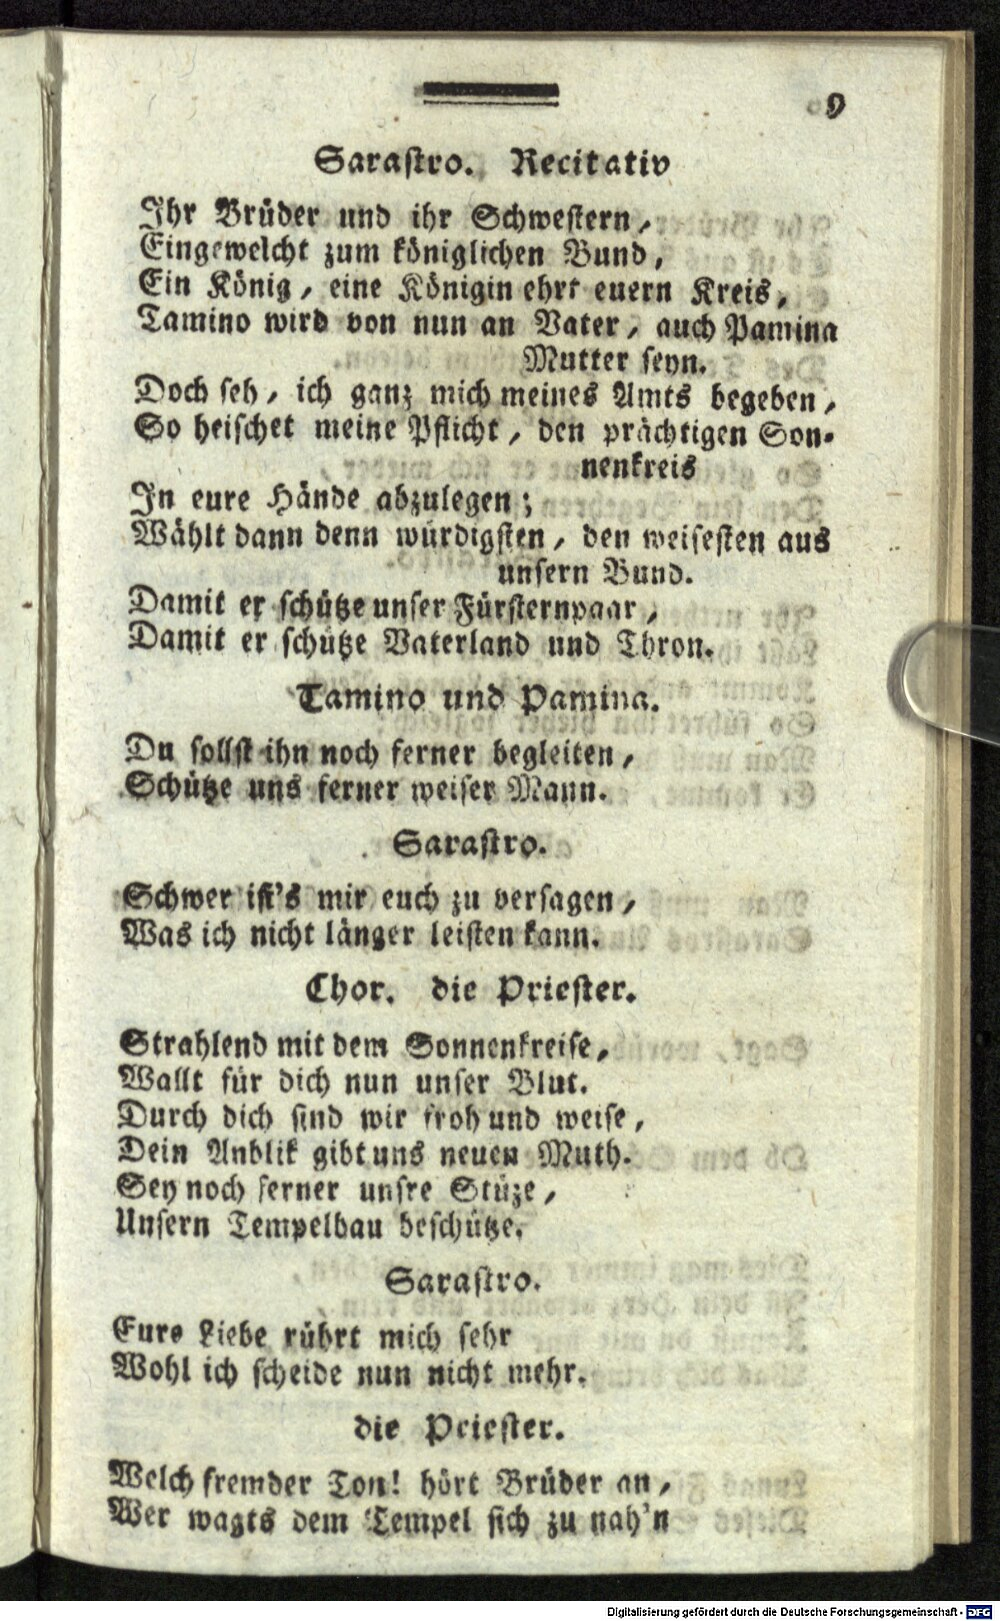 9
Sarastro. Recitativ
Ihr Brüder und ihr Schwestern,
Eingeweicht zum königlichen Bund,
Ein König, eine Königin ehrt euern Kreis,
Tamino wird von nun an Vater, auch Pamina
Mutter seyn.
Doch seh, ich ganz mich meines Amts begeben,
So heischet meine Pflicht, den prächtigen Son-
nenkreis
In eure Hände abzulegen;
Wählt dann denn würdigsten, den weisesten aus
unsern Bund.
Damit er schütze unser Fürsternpaar,
Damit er schütze Vaterland und Thron.
Tamino und Pamina.
Du sollst ihn noch ferner begleiten,
Schütze uns ferner weiser Mann.
Sarastro.
Schwer ist's mir euch zu versagen,
Was ich nicht länger leisten kann.
Chor. die Priester.
Strahlend mit dem Sonnenkreise,
Wallt für dich nun unser Blut.
Durch dich sind wir froh und weise,
Dein Anblik gibt uns neuen Muth.
Sey noch ferner unsre Stüze,
Unsern Tempelbau beschütze.
Sarastro.
Eure Liebe rührt mich sehr
Wohl ich scheide nun nicht mehr.
die Priester.
Welch fremder Ton! hört Brüder an,
Wer wagts dem Tempel sich zu nah'n
Digitalisierung gefördert durch die Deutsche Forschungsgemeinschaft - DFG